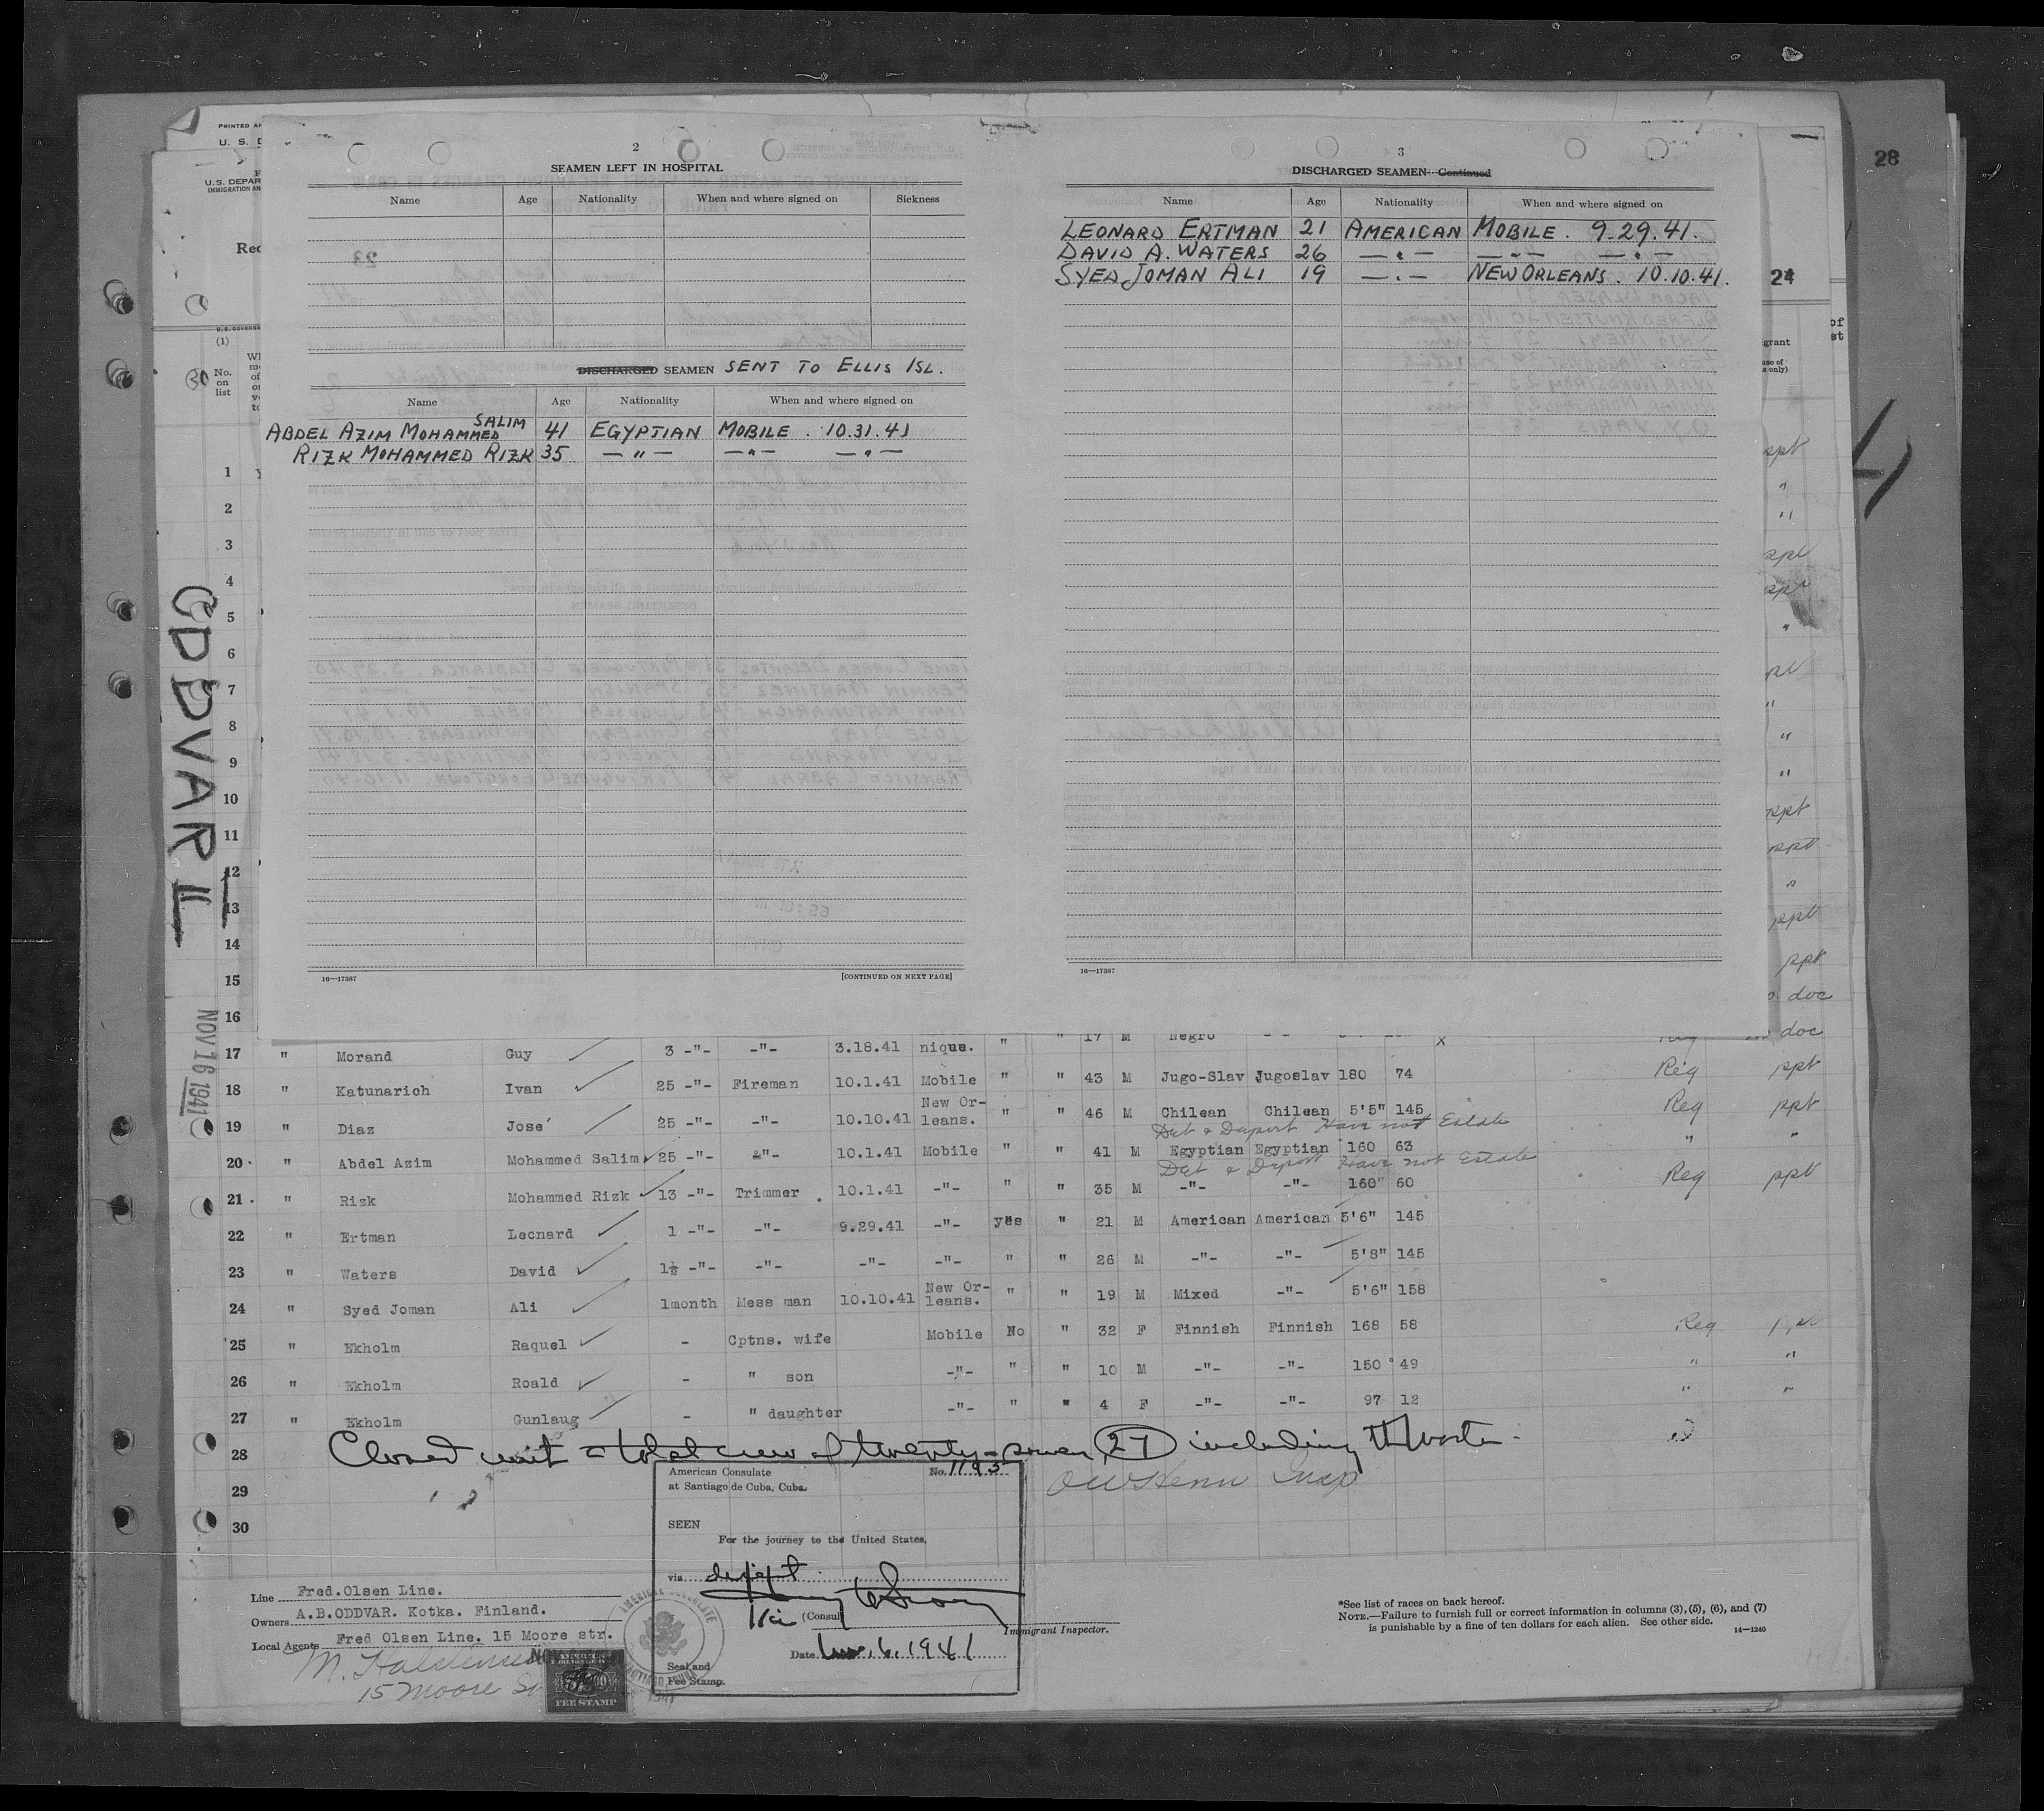 PRINTED
U. S.
U.S. DEPAR
IMMIGRATION AN
28
24
2
SEAMEN LEFT IN HOSPITAL
Name Age Nationality When and where signed on Sickness
DISCHARGED SEAMEN SENT TO ELLIS ISL.
Name Age Nationality When and where signed on
ABDEL AZIM MOHAMMED SALIM 41 EGYPTIAN MOBILE . 10.31.41
RIZK MOHAMMED RIZK 35 — " — — " — — " —
16—17387 [CONTINUED ON NEXT PAGE]
3
DISCHARGED SEAMEN—Continued
Name Age Nationality When and where signed on
LEONARD ERTMAN 21 AMERICAN MOBILE. 9.29.41.
DAVID A. WATERS 26 — " — — " — — " —
SYED JOMAN ALI 19 — " — NEW ORLEANS. 10.10.41.
16—17387
ODDVAR II
NOV 16 1941
(1)
No. on list
30
1
2
3
4
5
6
7
8
9
10
11
12
13
14
15
16
17 " Morand Guy 3 -"- -"- 3.18.41 nique. " " 17 M Negro doc
18 " Katunarich Ivan 25 -"- Fireman 10.1.41 Mobile " " 43 M Jugo-Slav Jugoslav 180 74 Req ppt
19 " Diaz José 25 -"- -"- 10.10.41 New Or-leans. " " 46 M Chilean Chilean 5'5" 145 Req ppt
Det & Deport Have not Estate
20 " Abdel Azim Mohammed Salim 25 -"- -"- 10.1.41 Mobile " " 41 M Egyptian Egyptian 160 63 " "
Det & Deport Have not Estate
21 " Rizk Mohammed Rizk 13 -"- Trimmer 10.1.41 -"- " " 35 M -"- -"- 160" 60 Req ppt
22 " Ertman Leonard 1 -"- -"- 9.29.41 -"- yes " 21 M American American 5'6" 145
23 " Waters David 1½ -"- -"- -"- -"- " " 26 M -"- -"- 5'8" 145
24 " Syed Joman Ali 1month Mess man 10.10.41 New Or-leans. " " 19 M Mixed -"- 5'6" 158
25 " Ekholm Raquel - Cptns. wife Mobile No " 32 F Finnish Finnish 168 58 Req
26 " Ekholm Roald - " son -"- " " 10 M -"- -"- 150 49 " "
27 " Ekholm Gunlaug - " daughter -"- " " 4 F -"- -"- 97 12 " "
28 Closed visit = total crew of twenty-seven (27) including Master
29
30
American Consulate No. 1193
at Santiago de Cuba, Cuba.
SEEN
For the journey to the United States,
via
(Consul
Date Nov. 6. 1941
Seal and
Fee Stamp.
Immigrant Inspector.
Line Fred.Olsen Line.
Owners A.B.ODDVAR. Kotka. Finland.
Local Agents Fred Olsen Line. 15 Moore str.
15 Moore St
FEE STAMP
*See list of races on back hereof.
NOTE.—Failure to furnish full or correct information in columns (3), (5), (6), and (7)
is punishable by a fine of ten dollars for each alien. See other side.
14—1240